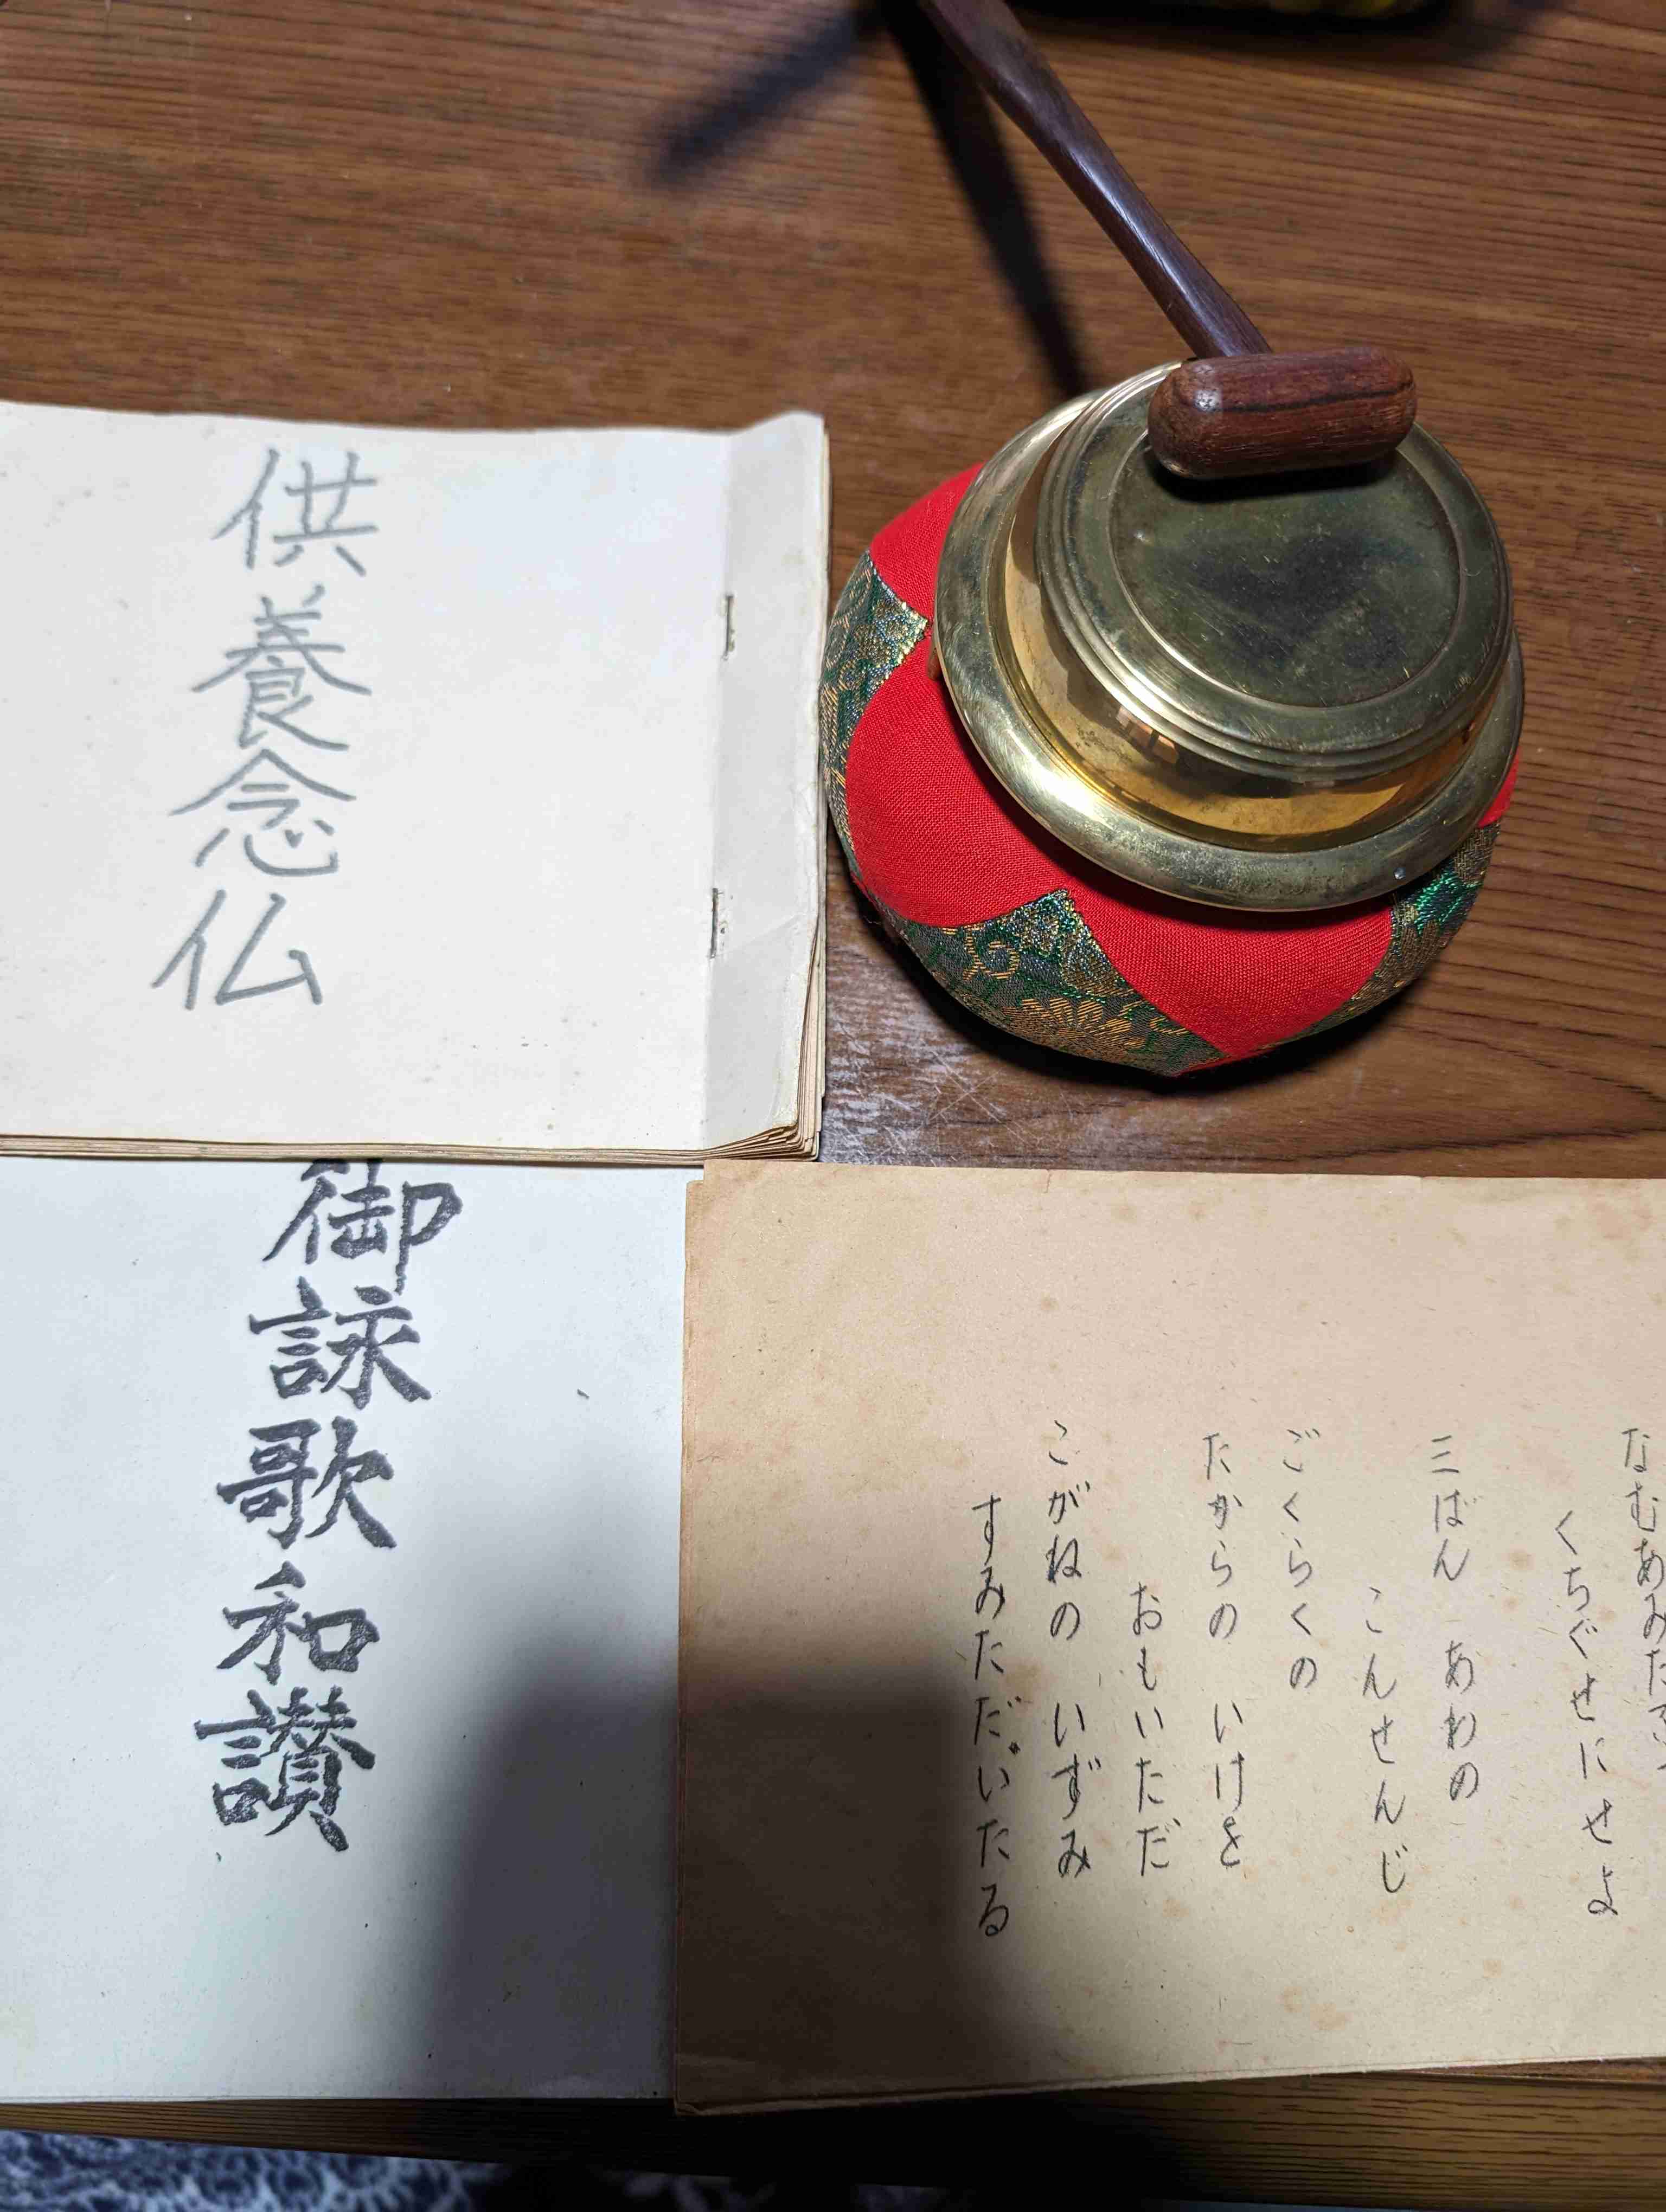 供養念仏
御詠歌和讃
なむあみだ
くちぐせにせよ
三ばん あわの
こんせんじ
ごくらくの
たからの いけを
おもいただ
こがねの いずみ
すみただいたる